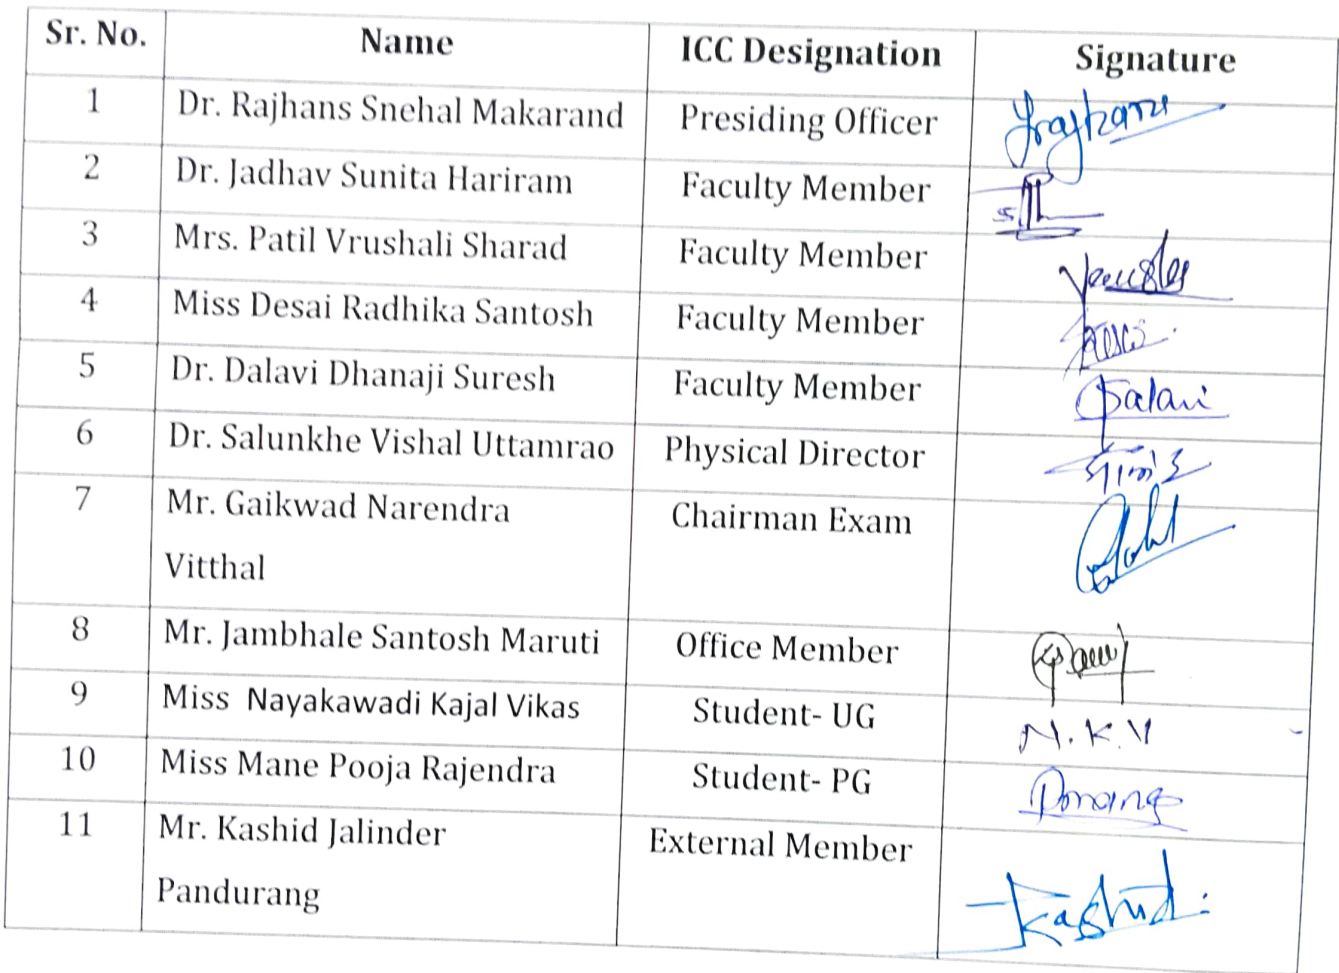 Sr. No. Name ICC Designation Signature
1 Dr. Rajhans Snehal Makarand Presiding Officer
2 Dr. Jadhav Sunita Hariram Faculty Member
3 Mrs. Patil Vrushali Sharad Faculty Member
4 Miss Desai Radhika Santosh Faculty Member
5 Dr. Dalavi Dhanaji Suresh Faculty Member Dalavi
6 Dr. Salunkhe Vishal Uttamrao Physical Director
7 Mr. Gaikwad Narendra Chairman Exam
Vitthal
8 Mr. Jambhale Santosh Maruti Office Member
9 Miss Nayakawadi Kajal Vikas Student- UG N.K.V
10 Miss Mane Pooja Rajendra Student- PG
11 Mr. Kashid Jalinder External Member
Pandurang Kashid